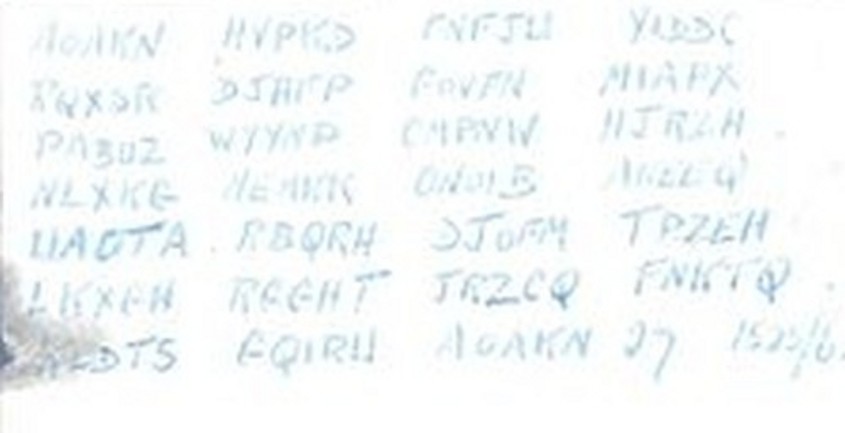 AOAKN HVPKD FNFJU YIDDC
RQXSR DJHFP GOVFN MIAPX
PABUZ WYYNP CMPNW HJRZH
NLXKG MEMKK ONOIB AKEEQ
UAOTA RBQRH DJOFM TPZEH
LKXGH RGGHT JRZCQ FNKTQ
KLDTS GQIRU AOAKN 27